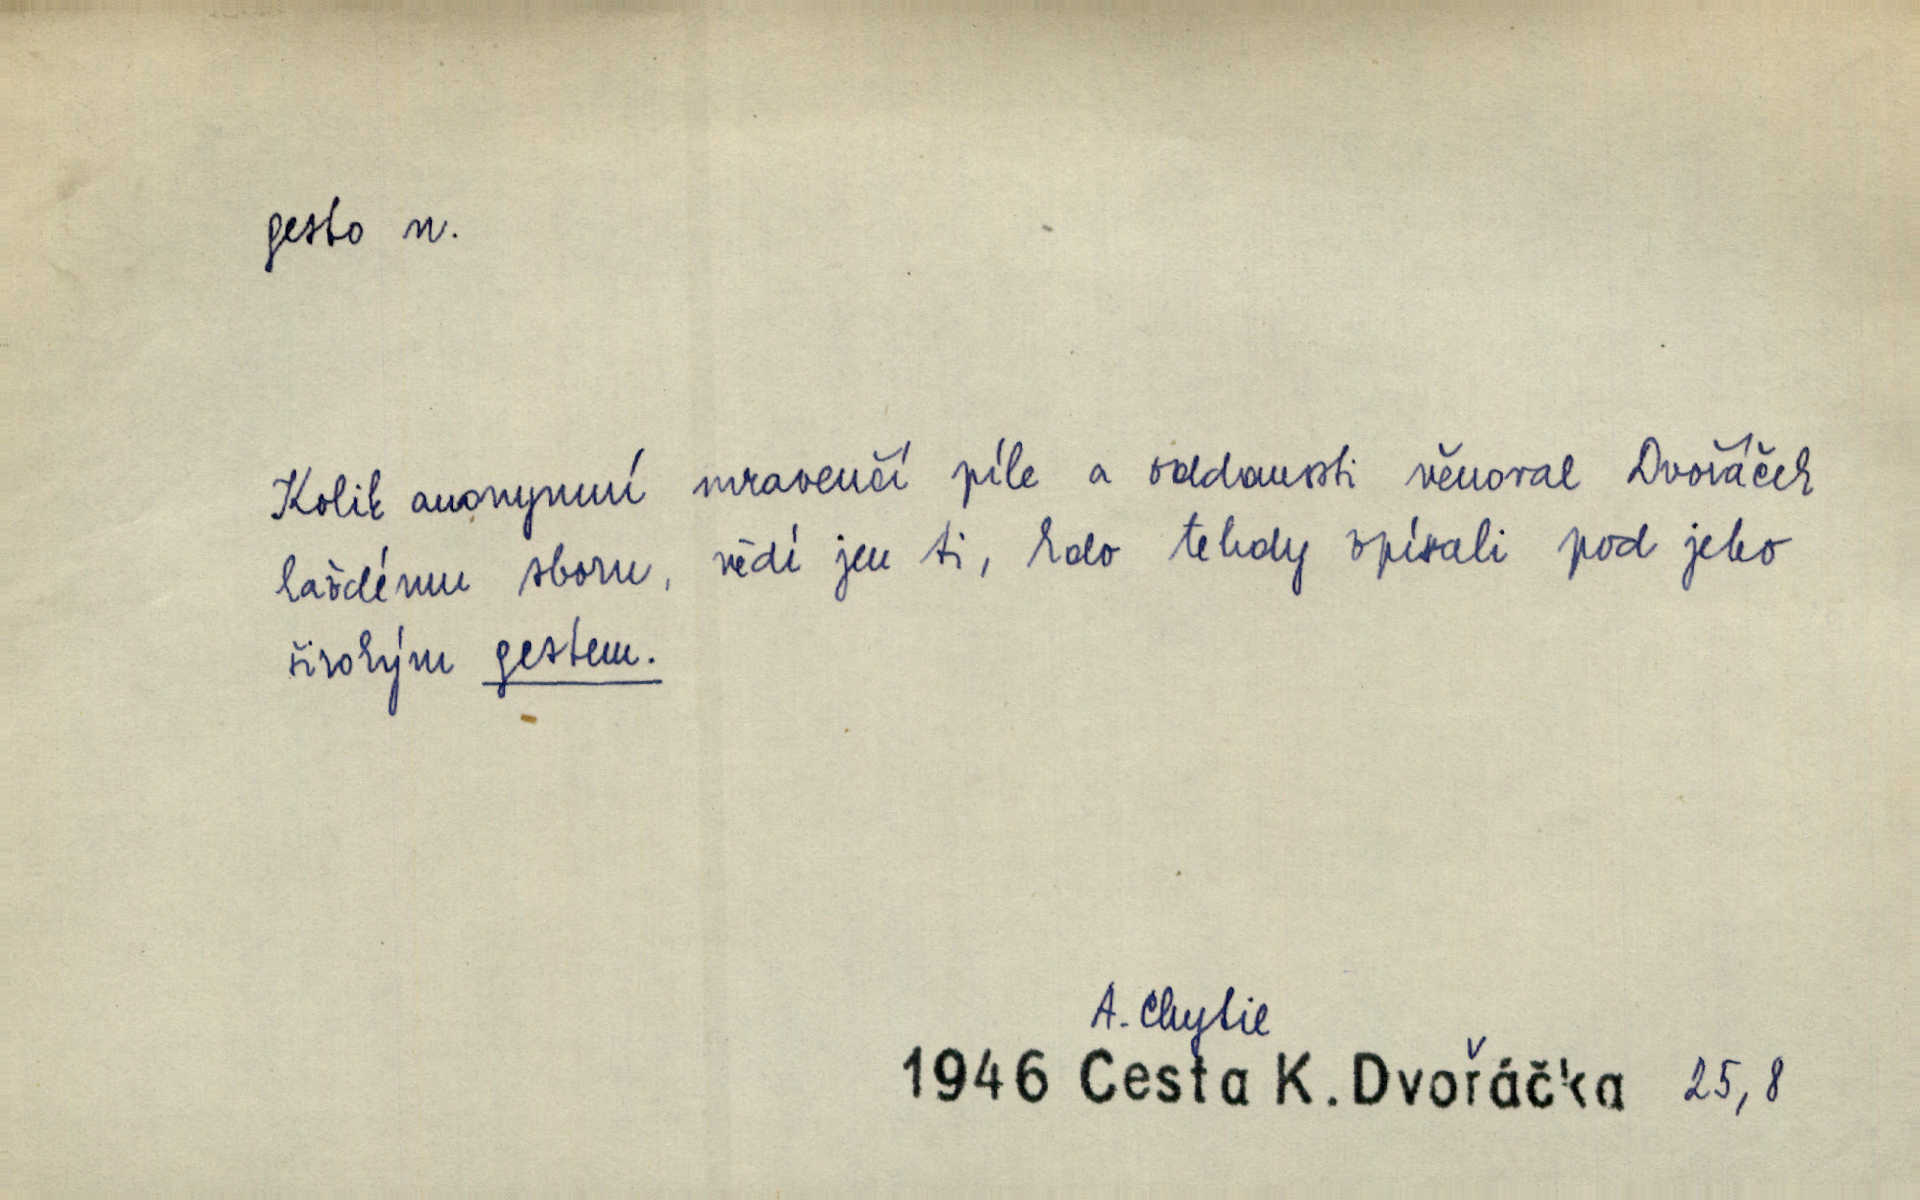 gesto n.
Kolik anonymní mravenčí píle a oddanosti věnoval Dvořáček
každému sboru, vědí jen ti, kdo tehdy zpívali pod jeho
širokým gestem.
A. Chytil
1946 Cesta K. Dvořáčka 25,8